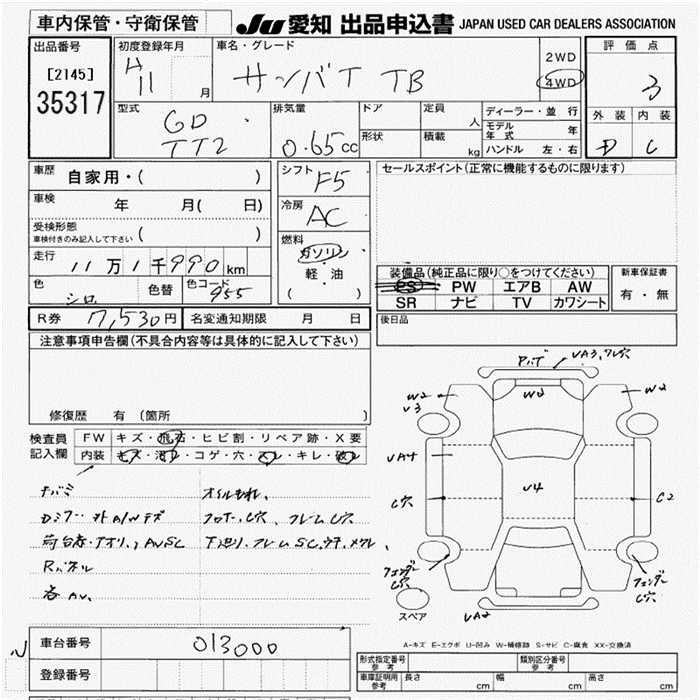 車内保管・守衛保管
JU 愛知 出品申込書 JAPAN USED CAR DEALERS ASSOCIATION
出品番号
[2145]
35317
初度登録年月
H 11 月
車名・グレード
サンバT TB
2WD
4WD
評価点
3
外装 内装
D C
型式
GD
TT2
排気量
0.65cc
ドア
形状
定員 人
積載 kg
ディーラー・並行
モデル年式 年
ハンドル 左・右
車歴 自家用・( )
車検 年 月( 日)
受検形態
車検付きのみ記入して下さい ( )
走行 11万1千990km
色 シロ
色替
色コード 955
シフト F5
冷房 AC
燃料
ガソリン
・
軽・油
( )
セールスポイント(正常に機能するものに限ります)
装備品(純正品に限り○をつけてください)
PS PW エアB AW
SR ナビ TV カワシート
新車保証書
有・無
R券 7,530円 名変通知期限 月 日
後日品
注意事項申告欄(不具合内容等は具体的に記入して下さい)
修復歴 有 (箇所
検査員記入欄
FW キズ・飛石・ヒビ割・リペア跡・X要
内装 キズ・汚れ・コゲ・穴・スレ・キレ・破れ
オイルもれ、
Rパネル
各AU、
アバド UA3、
W2
V3
W2
W2
UA4
C穴
U4
C2
フェンダー
C穴
フェンダー
C穴
スペア
UA2
A-キズ E-エクボ U-凹み W-補修跡 S-サビ C-腐食 XX-交換済
車台番号 013000
登録番号
形式指定番号 参考
類別区分番号 参考
車庫証明用 参考 長さ cm 幅 cm 高さ cm